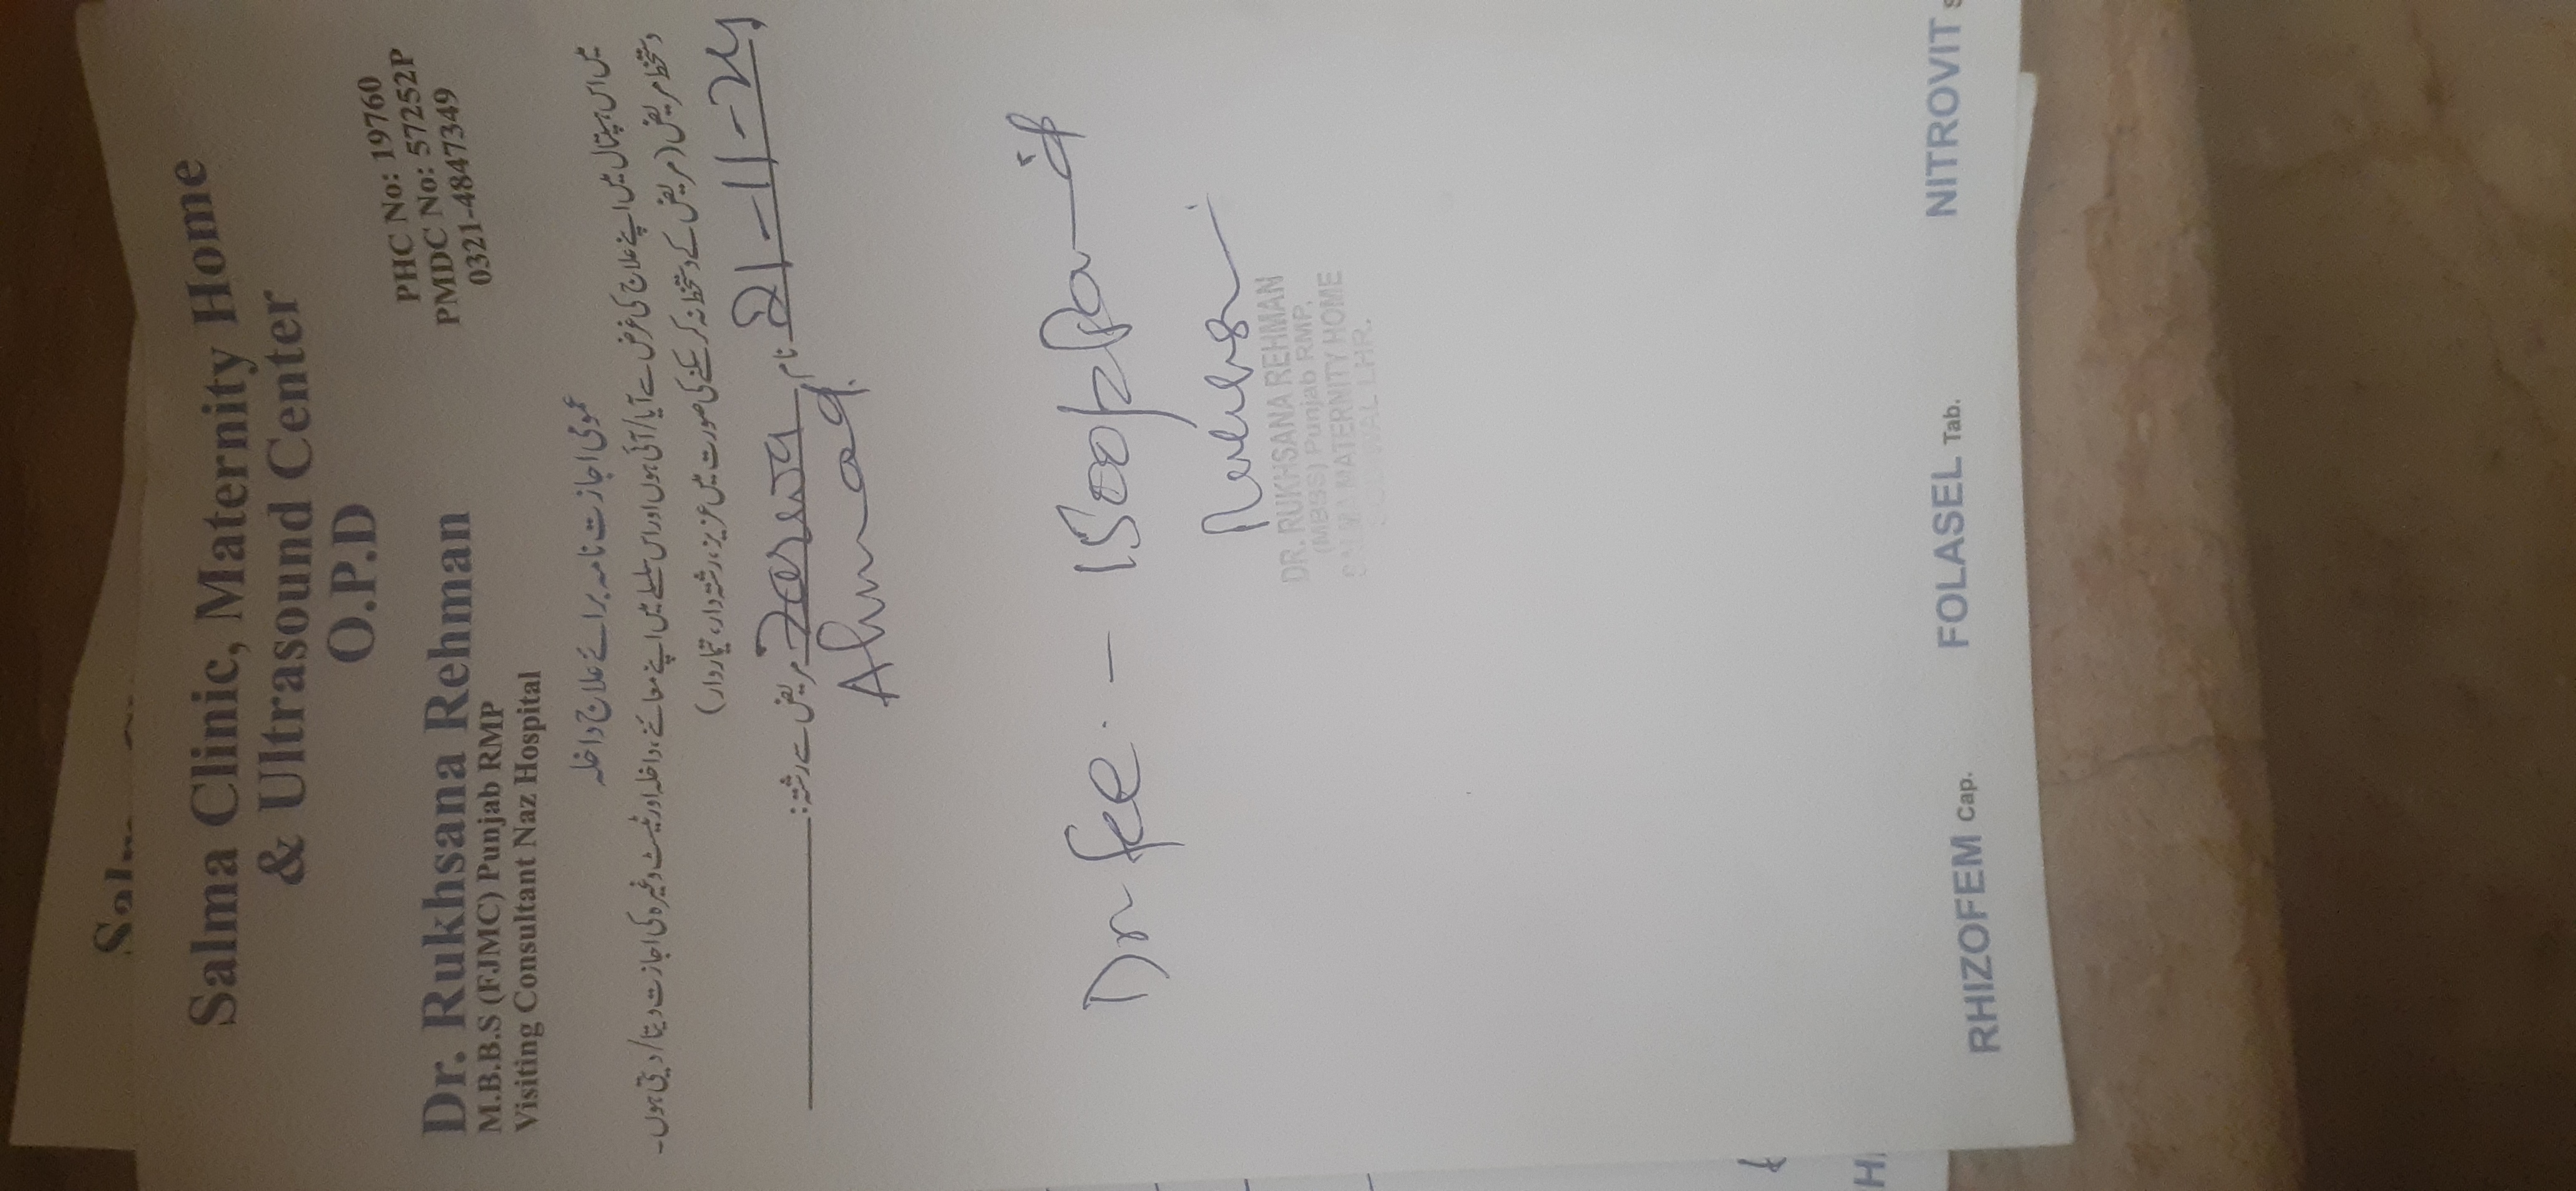 Salma
Salma Clinic, Maternity Home
& Ultrasound Center
O.P.D
Dr. Rukhsana Rehman
M.B.B.S (FJMC) Punjab RMP
Visiting Consultant Naz Hospital
PHC No: 19760
PMDC No: 57252P
0321-4847349
عمومی اجازت نامہ برائے علاج داخلہ
میں اس ہسپتال میں اپنے علاج کی غرض سے آیا/آئی ہوں اور اس سلسلے میں اپنے معائنے، داخلہ اور ٹیسٹ وغیرہ کی اجازت دیتا/دیتی ہوں۔
دستخط مریض (مریض کے دستخط نہ کر سکنے کی صورت میں عزیز، رشتہ دار، تیماردار)
21-11-24 نام Zarwa مریض سے رشتہ:
Ahmad
Dr fee - 1500/= Paid
DR. RUKHSANA REHMAN
(MBBS) Punjab RMP.
SALMA MATERNITY HOME
LHR.
RHIZOFEM Cap.
FOLASEL Tab.
NITROVIT